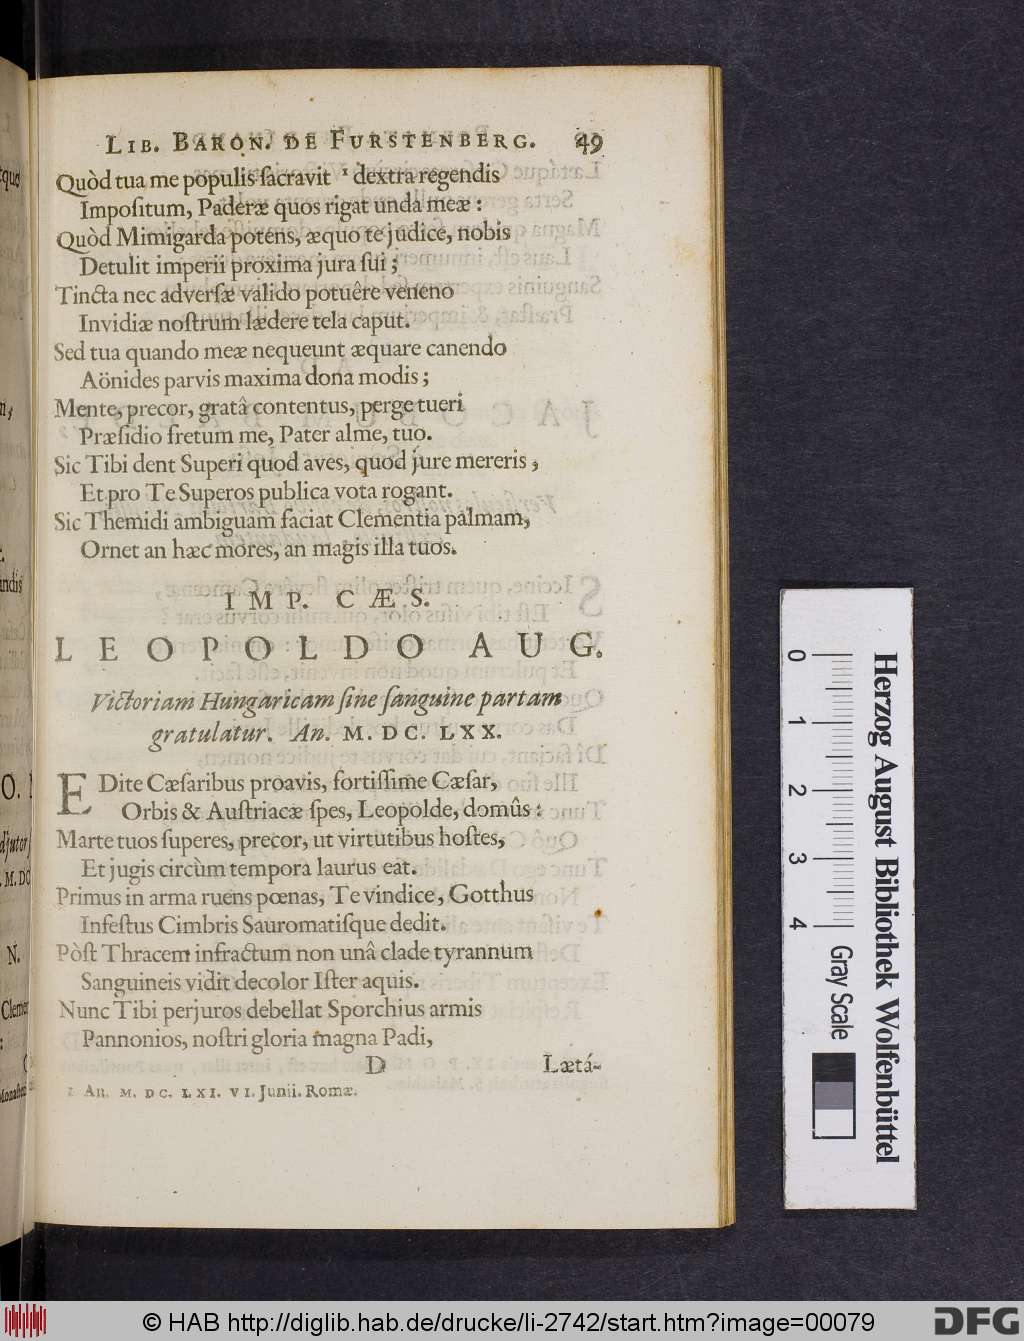 LIB. BARON. DE FURSTENBERG. 49
Quòd tua me populis ſacravit ¹ dextra regendis
Impoſitum, Paderæ quos rigat unda meæ :
Quòd Mimigarda potens, æquo te judice, nobis
Detulit imperii proxima jura ſui ;
Tincta nec adverſæ valido potuêre veneno
Invidiæ noſtrum lædere tela caput.
Sed tua quando meæ nequeunt æquare canendo
Aönides parvis maxima dona modis ;
Mente, precor, gratâ contentus, perge tueri
Præſidio fretum me, Pater alme, tuo.
Sic Tibi dent Superi quod aves, quod jure mereris ,
Et pro Te Superos publica vota rogant.
Sic Themidi ambiguam faciat Clementia palmam,
Ornet an hæc mores, an magis illa tuos.
IMP. CÆS.
LEOPOLDO AUG.
Victoriam Hungaricam ſine ſanguine partam
gratulatur. An. M. DC. LXX.
EDite Cæſaribus proavis, fortiſſime Cæſar,
Orbis & Auſtriacæ ſpes, Leopolde, domûs :
Marte tuos ſuperes, precor, ut virtutibus hoſtes,
Et jugis circùm tempora laurus eat.
Primus in arma ruens pœnas, Te vindice, Gotthus
Infeſtus Cimbris Sauromatiſque dedit.
Pòſt Thracem infractum non unâ clade tyrannum
Sanguineis vidit decolor Iſter aquis.
Nunc Tibi perjuros debellat Sporchius armis
Pannonios, noſtri gloria magna Padi,
D Lætá-
1 An. M. DC. LXI. VI. Junii. Romæ.
0 1 2 3 4
Gray Scale
Herzog August Bibliothek Wolfenbüttel
© HAB http://diglib.hab.de/drucke/li-2742/start.htm?image=00079
DFG